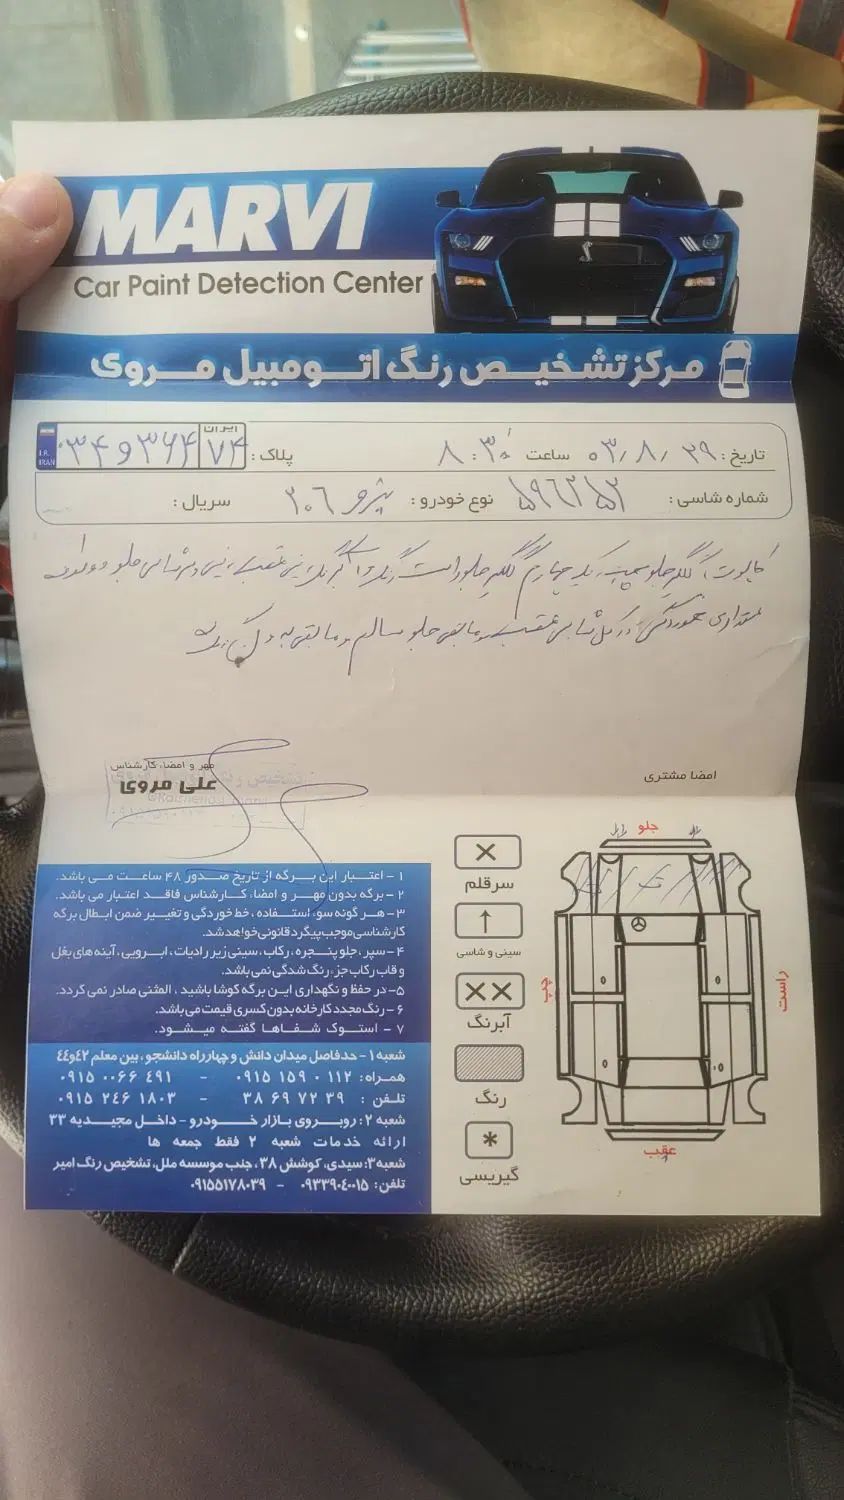 MARVI
Car Paint Detection Center
مرکز تشخیص رنگ اتومبیل مروی
تاریخ: ۰۳/۸/۲۹ ساعت ۸:۳۰ پلاک: ایران ۷۴ ۳۶۴ و ۳۴
I.R. IRAN
شماره شاسی: ۵۹۶۲۵۲ نوع خودرو: پژو ۲۰۶ سریال:
کاپوت، گلگیر جلو چپ یک چهارم گلگیر جلو راست رنگ
مقداری خوردگی عقب جلو سالم و مابقی بدون رنگ
امضا مشتری
مهر و امضاء کارشناس
علی مروی
۱- اعتبار این برگه از تاریخ صدور ۴۸ ساعت می باشد.
۲- برگه بدون مهر و امضاء کارشناس فاقد اعتبار می باشد.
۳- هر گونه سوء استفاده، خط خوردگی و تغییر ضمن ابطال برگه
کارشناسی موجب پیگرد قانونی خواهد شد.
۴- سپر، جلو پنجره، رکاب، سینی زیر رادیات، ابرویی، آینه های بغل
و قاب رکاب جزء رنگ شدگی نمی باشد.
۵- در حفظ و نگهداری این برگه کوشا باشید، المثنی صادر نمی گردد.
۶- رنگ مجدد کارخانه بدون کسری قیمت می باشد.
۷- استوک شفاها گفته میشود.
شعبه ۱- حدفاصل میدان دانش و چهارراه دانشجو، بین معلم ۴۲و۴۴
همراه: ۰۹۱۵ ۱۵۹ ۰ ۱۱۲ - ۰۹۱۵ ۰۰۶۶ ۴۹۱
تلفن: ۳۸ ۶۹ ۷۲ ۳۹ - ۰۹۱۵ ۲۴۶ ۱۸۰۳
شعبه ۲: روبروی بازار خودرو - داخل مجیدیه ۳۳
ارائه خدمات شعبه ۲ فقط جمعه ها
شعبه ۳: سیدی، کوشش ۳۸، جنب موسسه ملل، تشخیص رنگ امیر
تلفن: ۰۹۳۳۹۰۴۰۰۱۵ - ۰۹۱۵۵۱۷۸۰۳۹
سرقلم
سینی و شاسی
آبرنگ
رنگ
گیریسی
جلو
چپ
راست
عقب